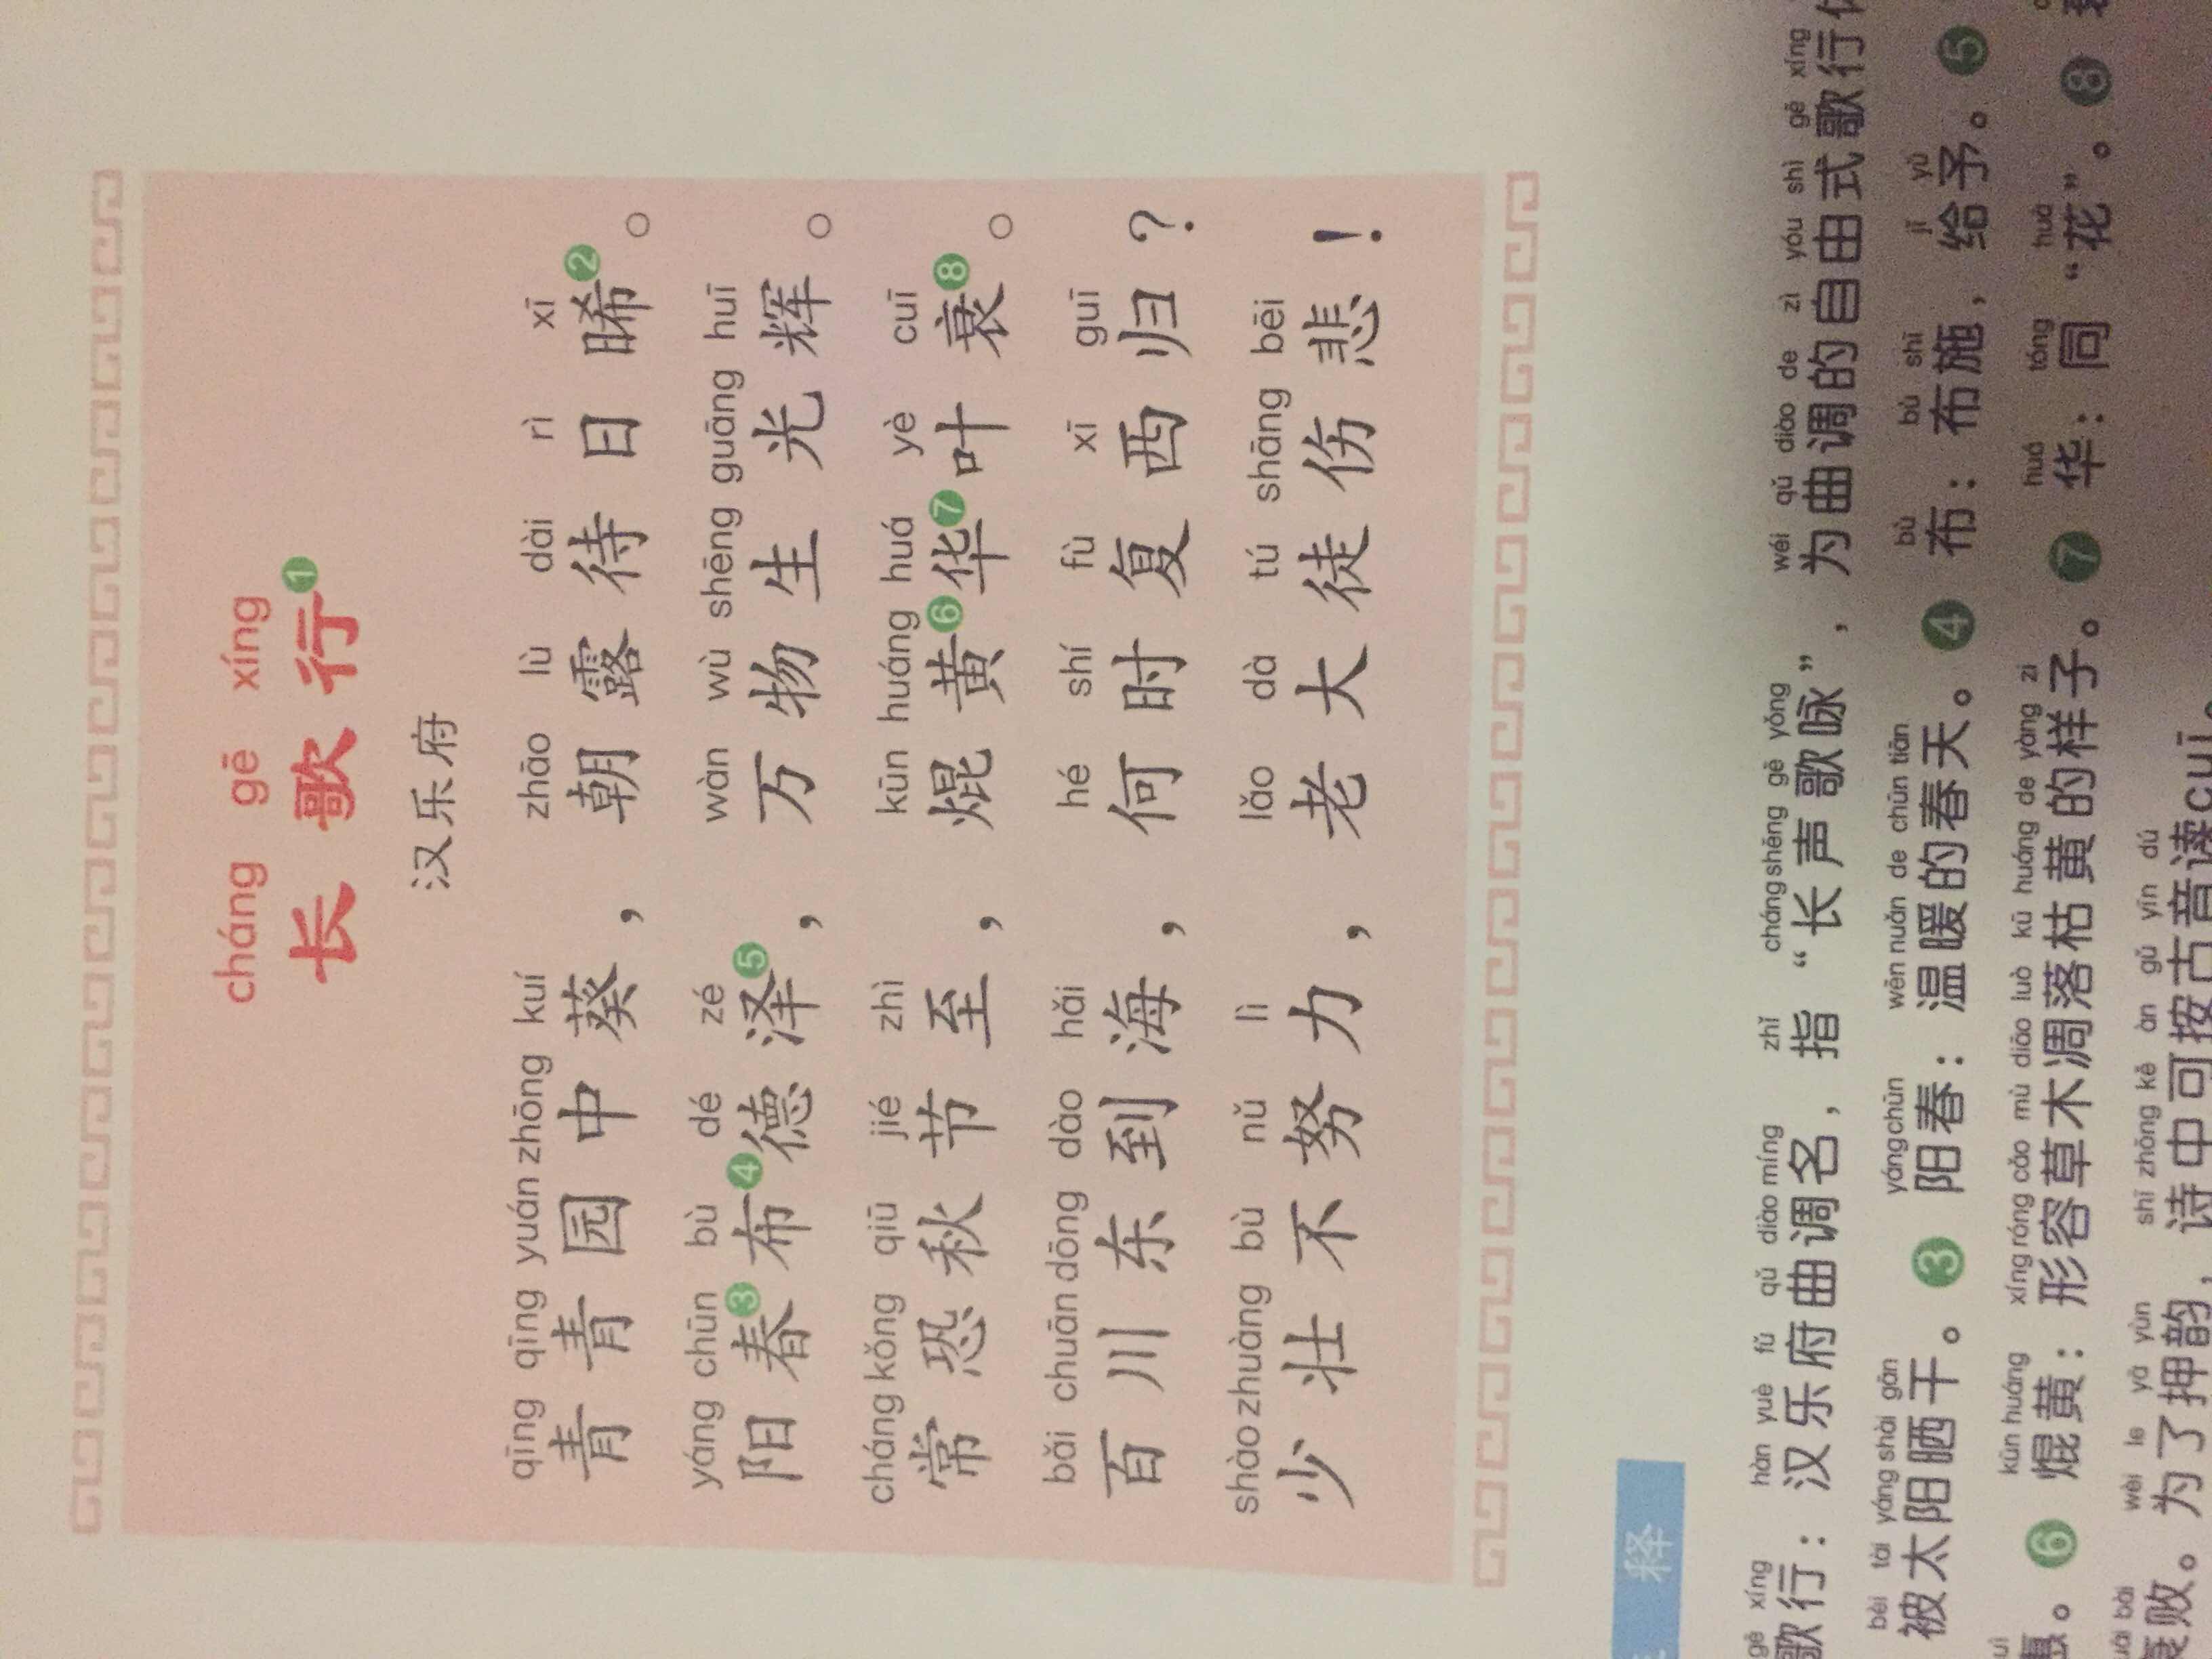 cháng gē xíng
长歌行①
汉乐府
qīng qīng yuán zhōng kuí zhāo lù dài rì xī
青青园中葵，朝露待日晞②。
yáng chūn bù dé zé wàn wù shēng guāng huī
阳春③布④德泽⑤，万物生光辉。
cháng kǒng qiū jié zhì kūn huáng huá yè cuī
常恐秋节至，焜黄⑥华⑦叶衰⑧。
bǎi chuān dōng dào hǎi hé shí fù xī guī
百川东到海，何时复西归？
shào zhuàng bù nǔ lì lǎo dà tú shāng bēi
少壮不努力，老大徒伤悲！
释
gē xíng hàn yuè fǔ qǔ diào míng zhǐ cháng shēng gē yǒng wéi qǔ diào de zì yóu shì gē xíng
歌行：汉乐府曲调名，指“长声歌咏”，为曲调的自由式歌行
bèi tài yáng shài gān yáng chūn wēn nuǎn de chūn tiān bù bù shī jǐ yǔ
被太阳晒干。③阳春：温暖的春天。④布：布施，给予。⑤
kūn huáng xíng róng cǎo mù diāo luò kū huáng de yàng zi huá tóng huā
。⑥焜黄：形容草木凋落枯黄的样子。⑦华：同“花”。⑧
bài wèi le yā yùn shī zhōng kě àn gǔ yīn dú
败。为了押韵，诗中可按古音读cuī。